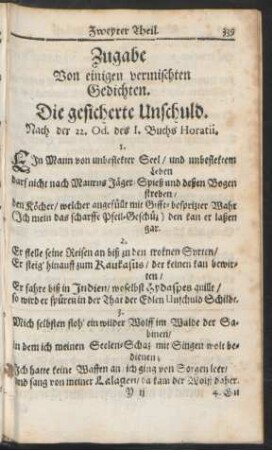 Zweyter Theil. 339
Zugabe
Von einigen vermischten
Gedichten.
Die gesicherte Unschuld.
Nach der 22. Od. des I. Buchs Horatii.
1.
EIn Mann von unbeflekter Seel / und unbeflektem
Leben
darf nicht nach Maurus Jäger-Spieß und deßen Bogen
streben /
den Köcher / welcher angefüllt mit Gifft-bespritzer Wahr
(Ich mein das scharffe Pfeil-Geschütz) den kan er laßen
gar.
2.
Er stelle seine Reisen an biß zu den troknen Syrten /
Er steig' hinauff zum Kaukasus / der keinen kan bewir-
ten /
Er fahre biß in Indien / woselbst Hydaspes quille /
so wird er spüren in der That der Edlen Unschuld Schild.
3.
Mich selbsten floh' ein wilder Wolff im Walde der Sa-
binen /
in dem ich meinen Seelen-Schatz mit Singen wolt be-
dienen;
Ich hatte keine Waffen an: ich ging von Sorgen leer /
und sang von meiner Lalagen / da kam der Wolff daher.
Y ij 4. Ein